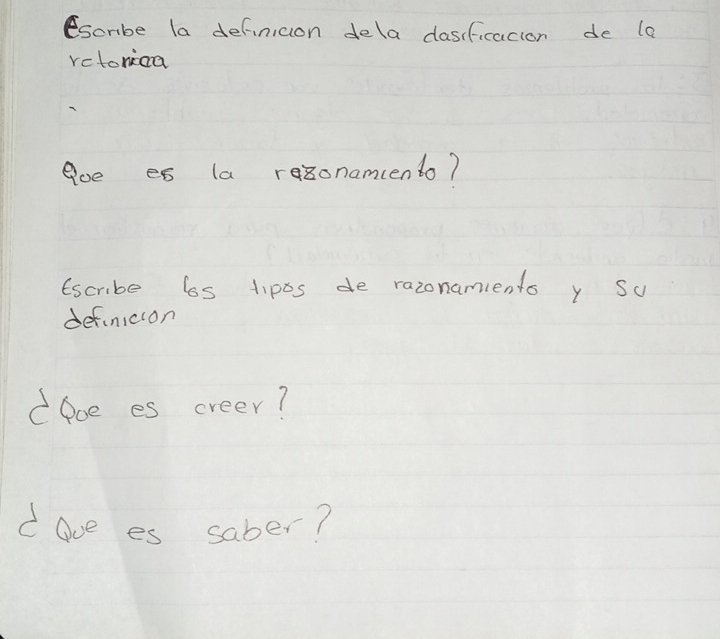 Escribe la definicion dela clasificacion de la
retorica
Que es la razonamiento?
Escribe los tipos de razonamiento y su
definicion
¿Que es creer?
¿Que es saber?